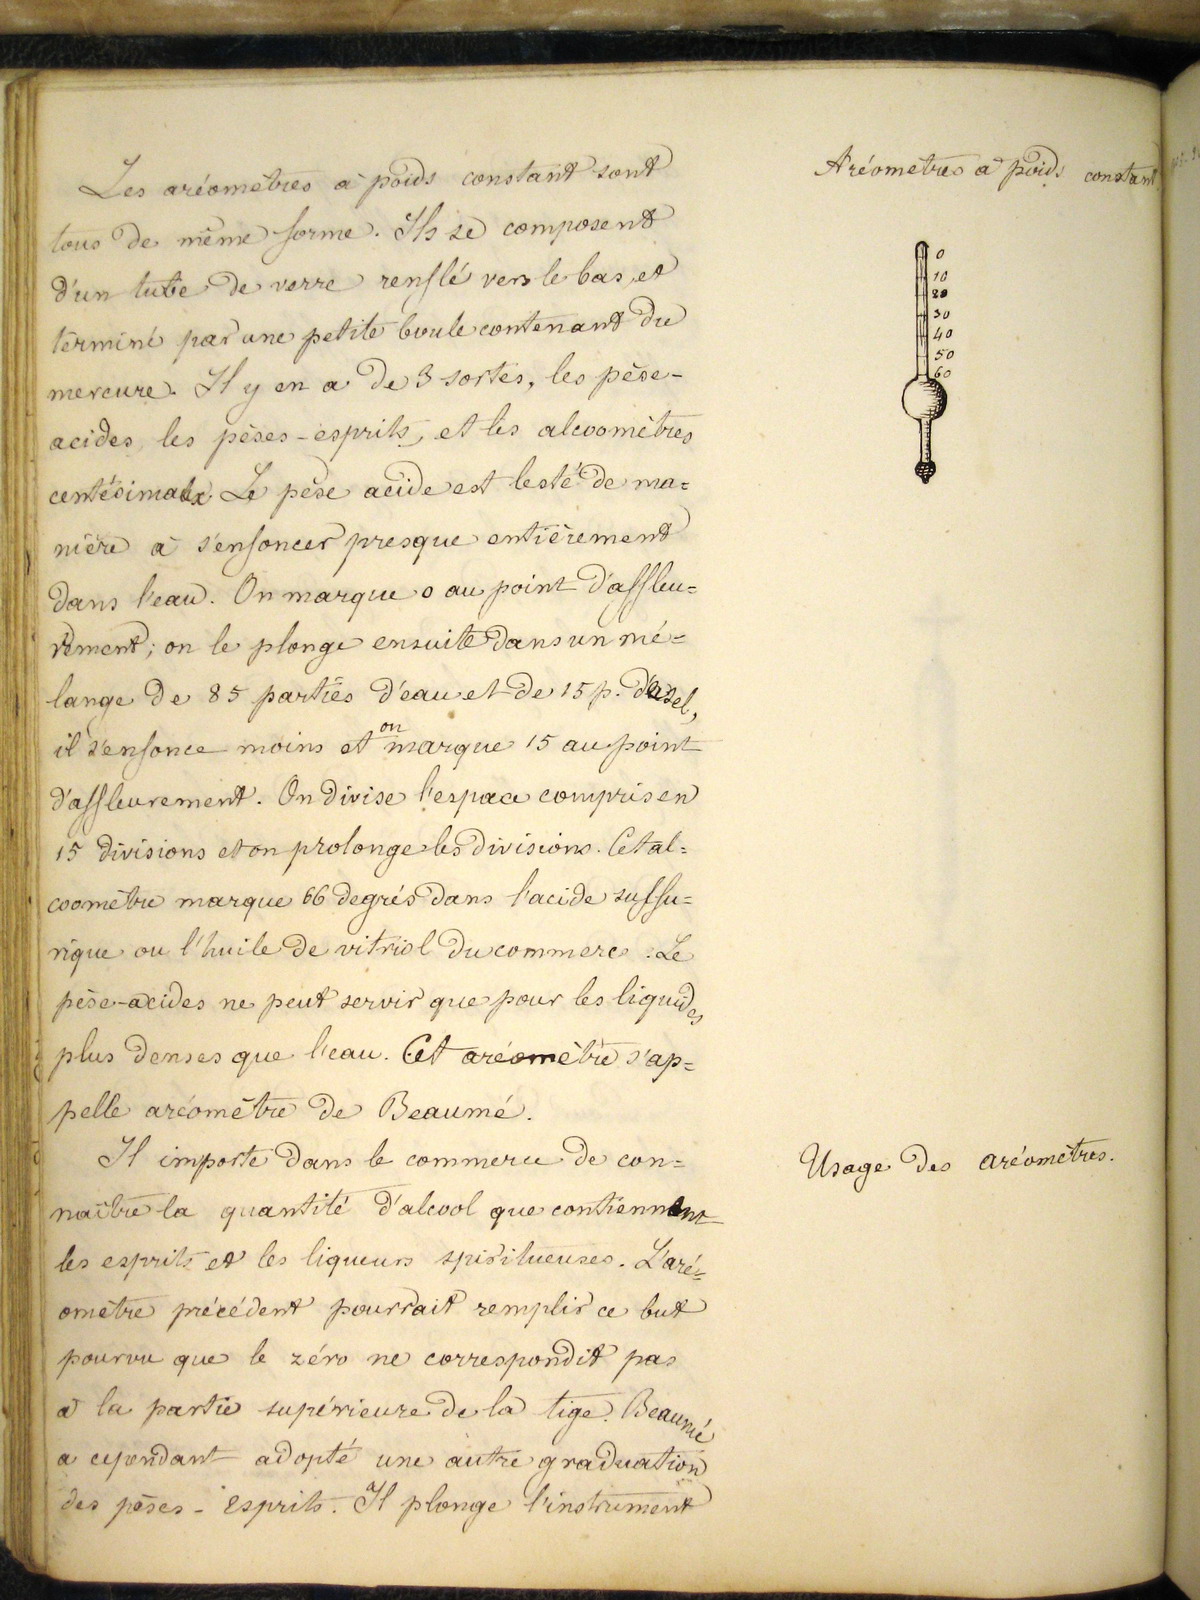 Les aréomètres à poids constant sont
tous de même forme. Ils se composent
d'un tube de verre renflé vers le bas, et
terminé par une petite boule contenant du
mercure. Il y en a de 3 sortes, les pèse-
acides, les pèses-esprits, et les alcoomètres
centésimaux. Le pèse acide est lesté de ma=
nière à s'enfoncer presque entièrement
dans l'eau. On marque 0 au point d'affleu=
rement; on le plonge ensuite dans un mé=
lange de 85 parties d'eau et de 15 p. de sel,
il s'enfonce moins et on marque 15 au point
d'affleurement. On divise l'espace compris en
15 divisions et on prolonge les divisions. Cet al=
coomètre marque 66 degrés dans l'acide sulfu=
rique ou l'huile de vitriol du commerce. Le
pèse-acides ne peut servir que pour les liquides
plus denses que l'eau. Cet aréomètre s'ap=
pelle aréomètre de Beaumé.
Il importe dans le commerce de con=
naître la quantité d'alcool que contiennent
les esprits et les liqueurs spiritueuses. L'aré=
omètre précédent pourrait remplir ce but
pourvu que le zéro ne correspondit pas
à la partie supérieure de la tige. Beaumé
a cependant adopté une autre graduation
des pèses-esprits. Il plonge l'instrument
Aréomètres à poids constant
0
10
20
30
40
50
60
Usage des aréomètres.